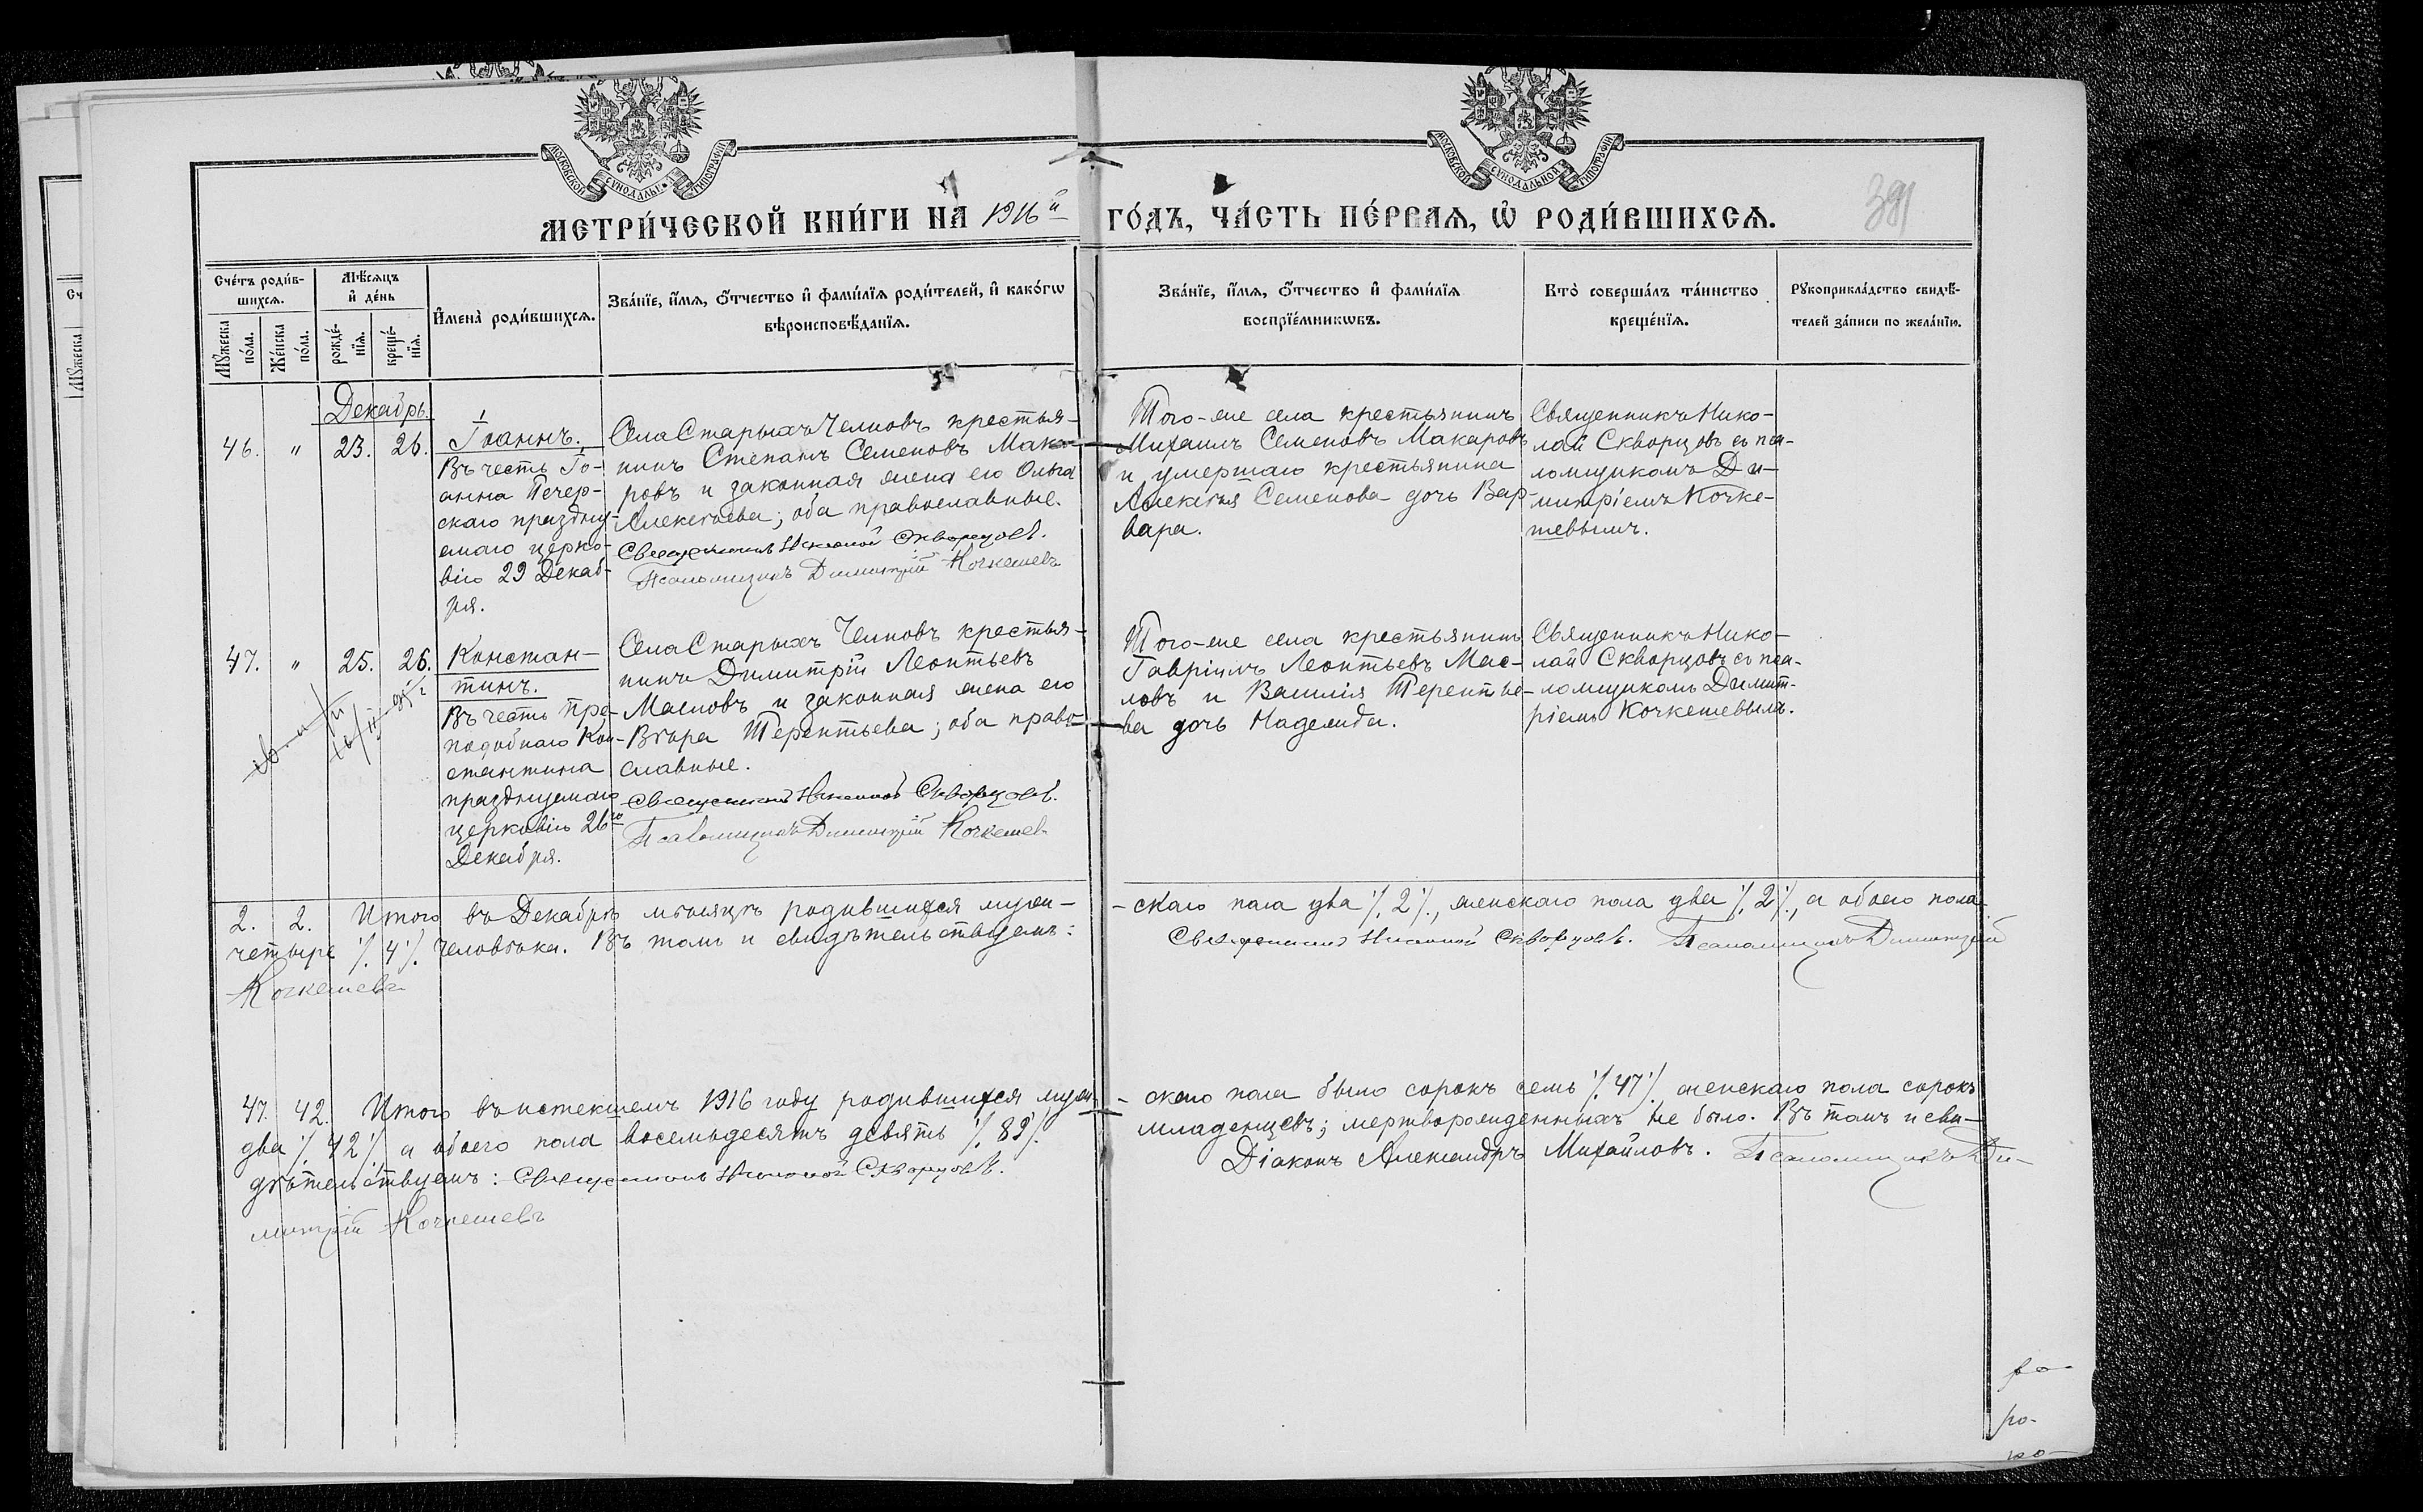 МОСКОВСКОЙ СѴНОДАЛЬНОЙ ТИПОГРАФІИ
МОСКОВСКОЙ СѴНОДАЛЬНОЙ ТИПОГРАФІИ
МЕТРИ́ЧЕСКОЙ КНИ́ГИ НА 1916й ГО́ДЪ, ЧА́СТЬ ПЕ́РВАЯ, Ѡ҆ РОДИ́ВШИХСѦ.
391
Сче́тъ роди́в-
шихсѧ.
Мꙋ́жеска по́ла.
Же́нска по́ла.
Мѣ́сѧцъ
и҆ де́нь
рожде́-
нїѧ.
креще́-
нїѧ.
И҆мена̀ роди́вшихсѧ.
Зва́нїе, и҆́мѧ, ѻ҆́тчество и҆ фами́лїѧ роди́телей, и҆ како́гѡ
вѣроисповѣ́данїѧ.
Зва́нїе, и҆́мѧ, ѻ҆́тчество и҆ фами́лїѧ
воспрїе́мникѡвъ.
Кто̀ соверша́лъ та́инство
креще́нїѧ.
Рꙋкоприкла́дство свидѣ́-
телей за́писи по жела́нїю.
Декабрь.
46. " 23. 26.
Іоаннъ.
Въ честь Іо-
анна Печер-
скаго праздну-
емаго церко-
вію 29 Декаб-
ря.
Села Старыхъ Челновъ крестья-
нинъ Степанъ Семеновъ Мака-
ровъ и законная жена его Ольга
Алексѣева; оба православные.
Священникъ Николай Скворцовъ.
Псаломщикъ Димитрій Кочкешевъ
Того-же села крестьянинъ
Михаилъ Семеновъ Макаровъ
и умершаго крестьянина
Алексѣя Семенова дочь Вар-
вара.
Священникъ Нико-
лай Скворцовъ съ пса-
ломщикомъ Ди-
митріемъ Кочке-
шевымъ.
47. " 25. 26.
Констан-
тинъ.
Въ честь пре-
подобнаго Кон-
стантина
празднуемаго
церковію 26го
Декабря.
Села Старыхъ Челновъ крестья-
нинъ Димитрій Леонтьевъ
Масловъ и законная жена его
Вѣра Терентьева; оба право-
славные.
Священникъ Николай Скворцовъ.
Псаломщикъ Димитрій Кочкешевъ
Того-же села крестьянинъ
Гавріилъ Леонтьевъ Мас-
ловъ и Василія Терентье-
ва дочь Надежда.
Священникъ Нико-
лай Скворцовъ съ пса-
ломщикомъ Димит-
ріемъ Кочкешевымъ.
2. 2. Итого въ Декабрѣ мѣсяцѣ родившихся муж-
-скаго пола два ./.2./., женскаго пола два ./.2./., а обоего пола
четыре ./.4./. человѣка. Въ томъ и свидѣтельствуемъ:
Священникъ Николай Скворцовъ. Псаломщикъ Димитрій
Кочкешевъ
47. 42. Итого въ истекшемъ 1916 году родившихся муж-
-скаго пола было сорокъ семь ./.47./. женскаго пола сорокъ
два ./.42./. а обоего пола восемьдесятъ девять ./.89./.
младенцевъ; мертворожденныхъ не было. Въ томъ и сви-
дѣтельствуемъ: Священникъ Николай Скворцовъ.
Діаконъ Александръ Михайловъ. Псаломщикъ Ди-
митрій Кочкешевъ